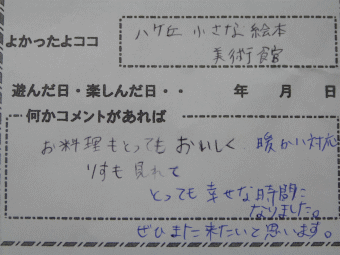 よかったよココ
八ヶ岳 小さな絵本
美術館
遊んだ日・楽しんだ日・・ 年 月 日
何かコメントがあれば
お料理もとってもおいしく 暖かい対応
りすも見れて
とっても幸せな時間に
なりました。
ぜひまた来たいと思います。